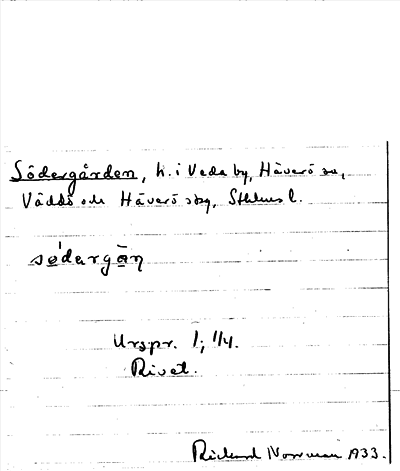 Södergården, h. i Veda by, Häverö sn,
Väddö och Häverö sbg, Sthlms l.
södargån
Urspr. 1; 1/4.
Rivet.
Rickard Norrman 1933.